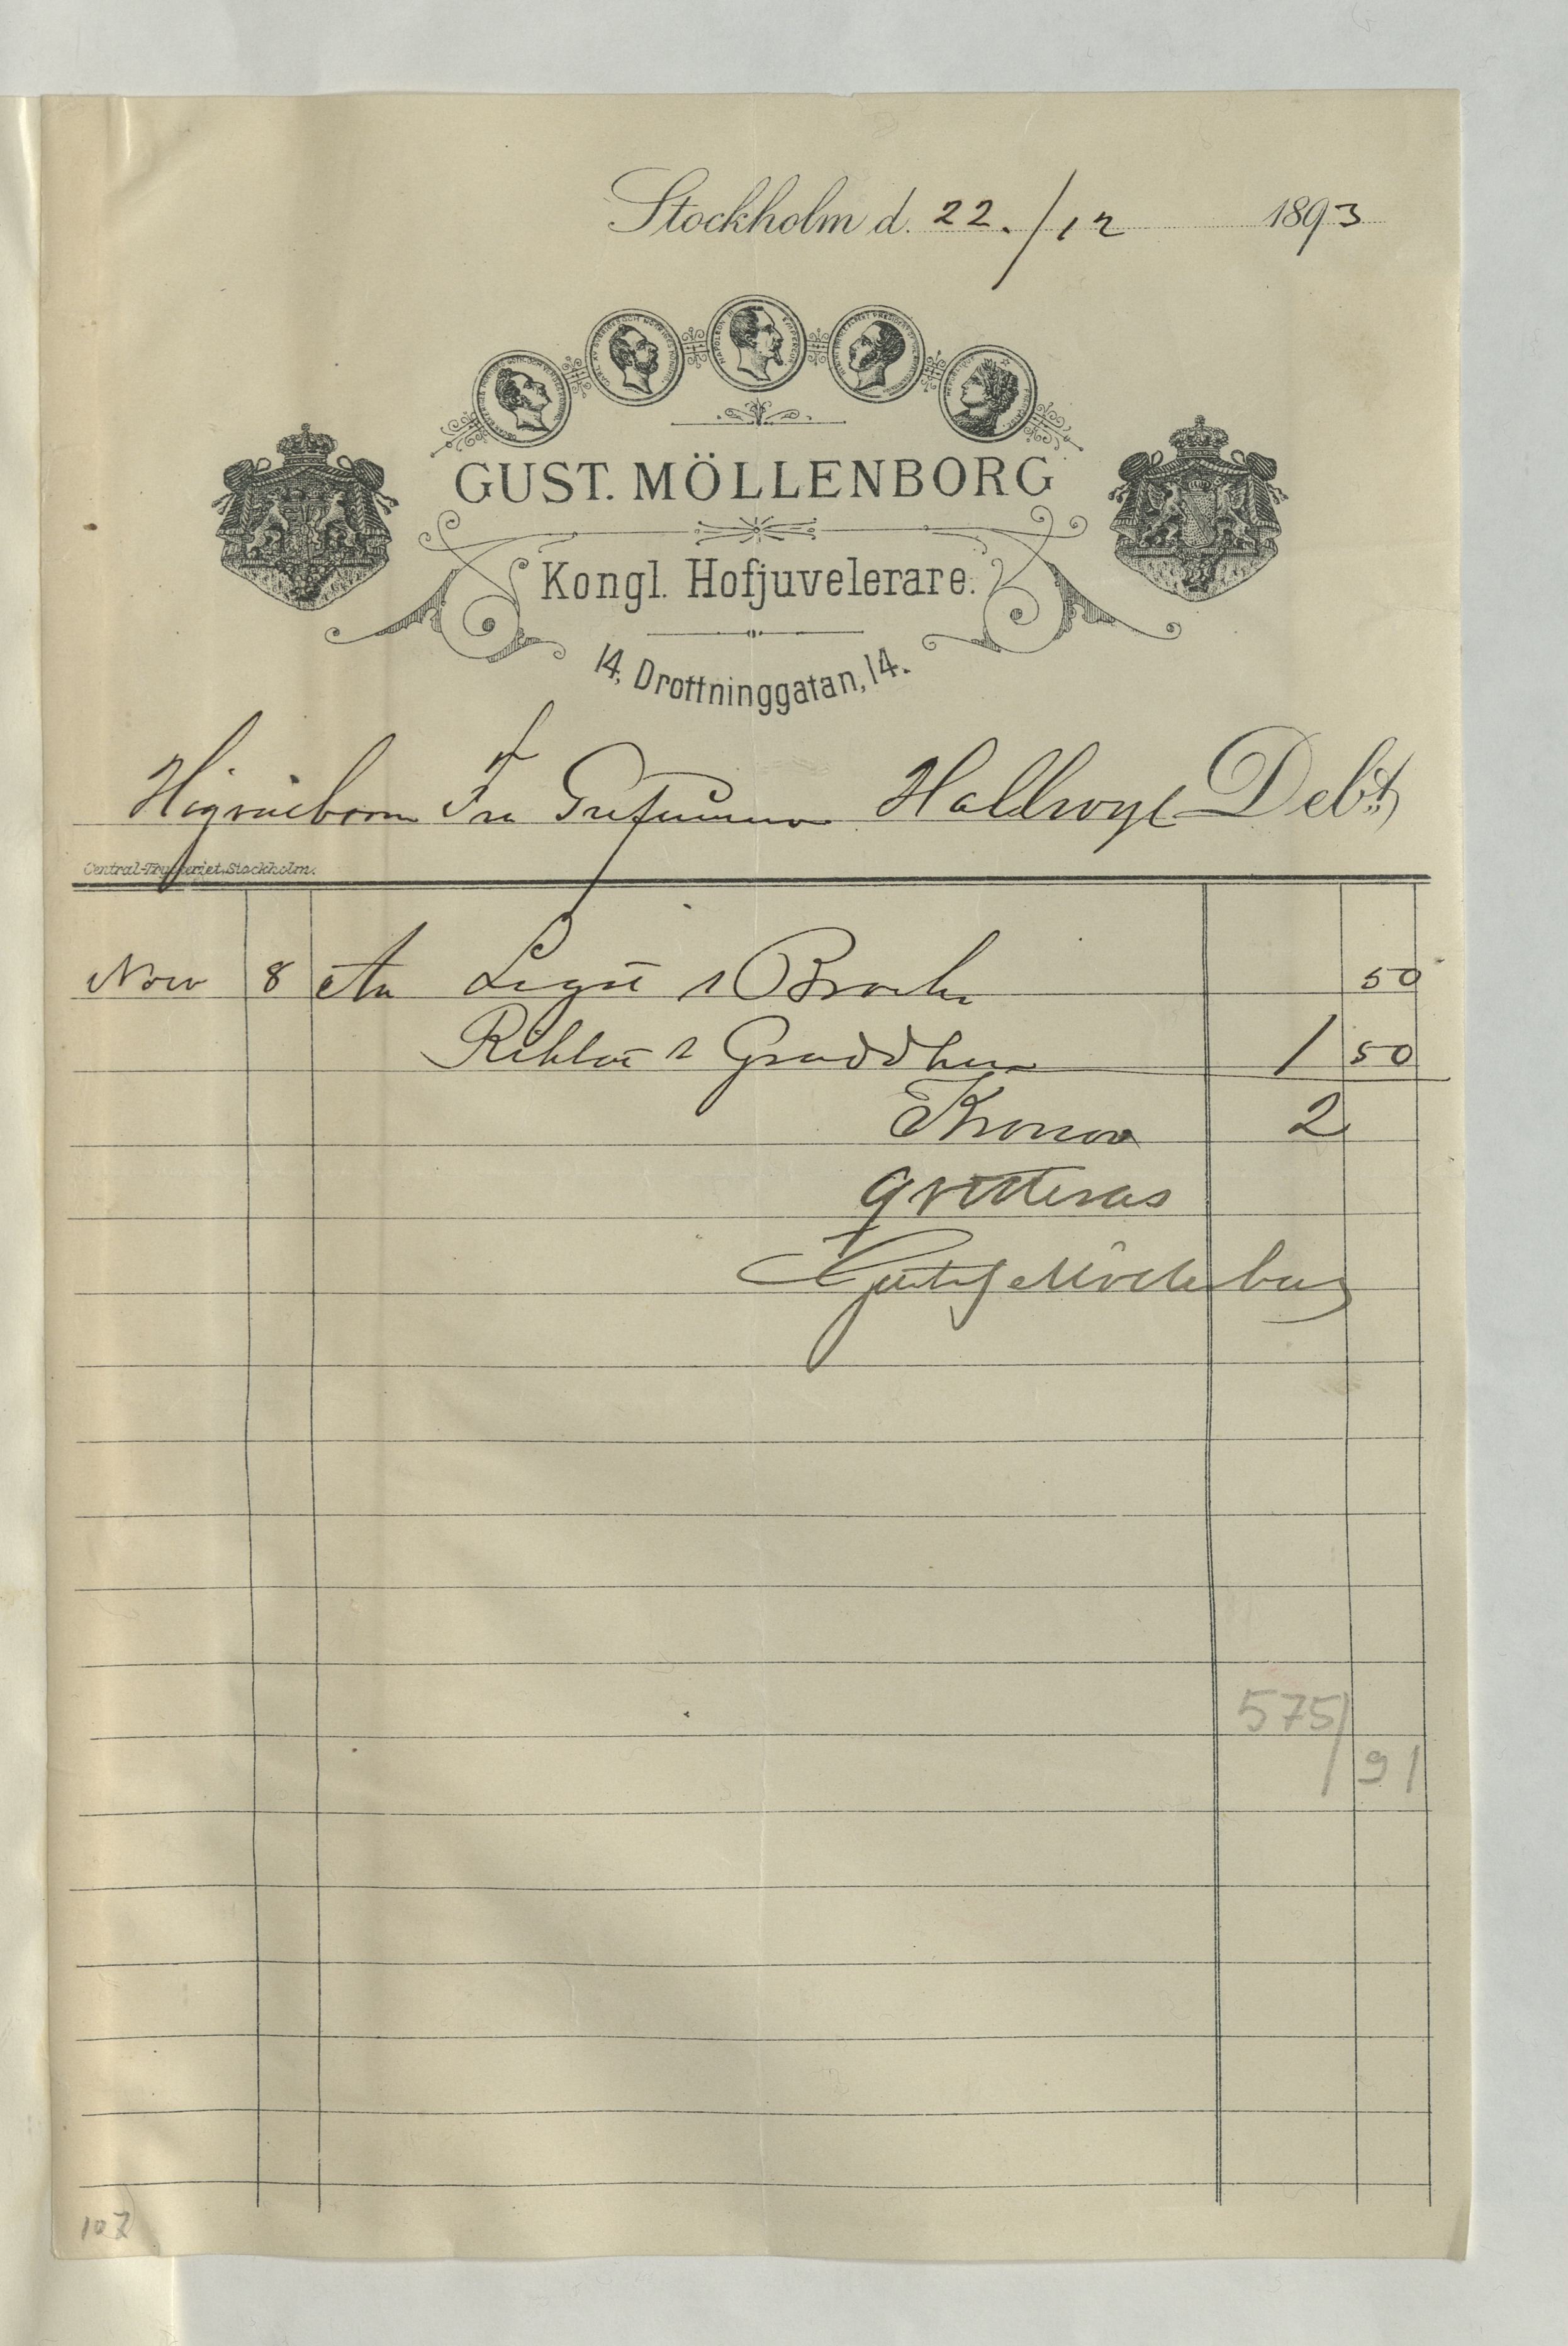 Stockholm d. 22./12 1893
GUST. MÖLLENBORG
Kongl. Hofjuvelerare.
14, Drottninggatan, 14.
Högvälborn Fru Grefvinna Hallwyl Debet
Central-Tryckeriet, Stockholm.
Nov 8 An Lagat 1 Broche 50
1 Gräddkanna 1 50
Kronor 2
qvitteras
Gustaf Möllenborg
575/
91
107